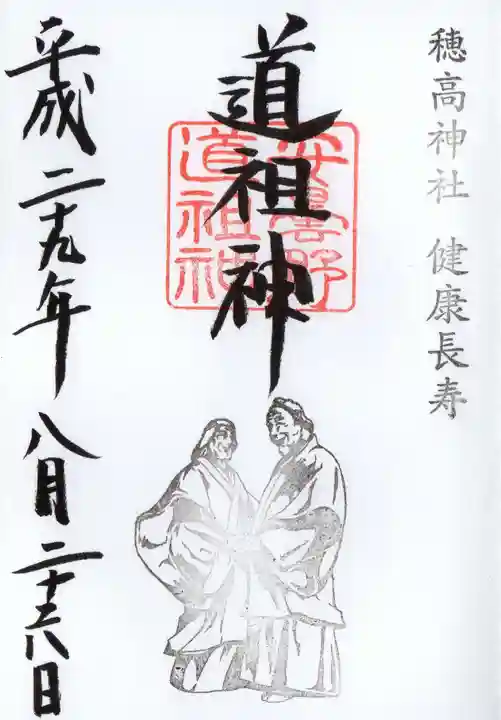 穂高神社 健康長寿
道祖神
安曇野
道祖神
平成二十九年 八月二十六日